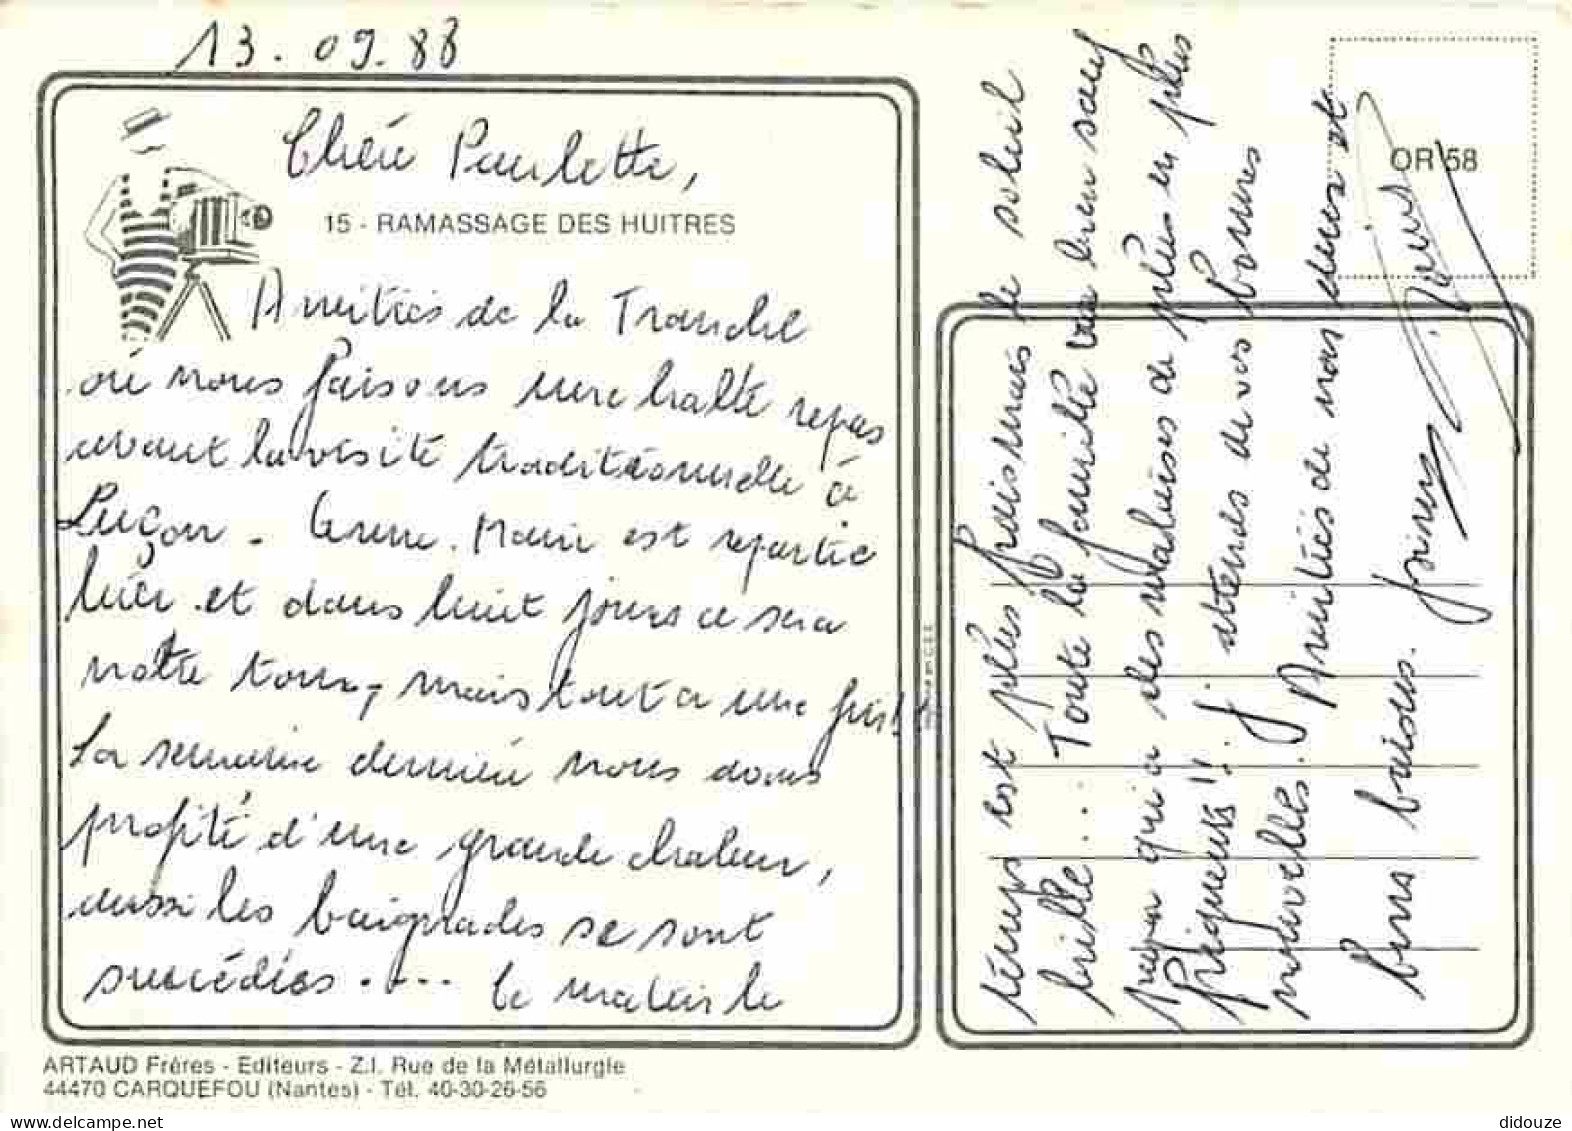 13.09.88
Chère Paulette,
15 - RAMASSAGE DES HUITRES
Amitiés de la Tranche
où nous faisons une halte repas
avant la visite traditionnelle à
Luçon. Anne. Marie est repartie
hier et dans huit jours ce sera
notre tour, mais tout a une fin!!
La semaine dernière nous avons
profité d'une grande chaleur,
aussi les baignades se sont
succédées.... Ce matin le
temps est plus frais mais le soleil
brille... Toute la famille va bien sauf
papa qui a des malaises de plus en plus
fréquents!! J'attends de vos bonnes
nouvelles. Amitiés de nous deux et
bons baisers.
OR 58
ARTAUD Frères - Editeurs - Z.I. Rue de la Métallurgie
44470 CARQUEFOU (Nantes) - Tél. 40-30-26-56
didouze